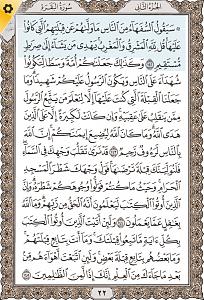 الجزء الثاني
سورة البقرة
۞ سَيَقُولُ ٱلسُّفَهَآءُ مِنَ ٱلنَّاسِ مَا وَلَّىٰهُمْ عَن قِبْلَتِهِمُ ٱلَّتِى كَانُوا۟
عَلَيْهَا قُل لِّلَّهِ ٱلْمَشْرِقُ وَٱلْمَغْرِبُ يَهْدِى مَن يَشَآءُ إِلَىٰ صِرَٰطٍ
مُّسْتَقِيمٍ ١٤٢ وَكَذَٰلِكَ جَعَلْنَٰكُمْ أُمَّةً وَسَطًا لِّتَكُونُوا۟
شُهَدَآءَ عَلَى ٱلنَّاسِ وَيَكُونَ ٱلرَّسُولُ عَلَيْكُمْ شَهِيدًا وَمَا
جَعَلْنَا ٱلْقِبْلَةَ ٱلَّتِى كُنتَ عَلَيْهَآ إِلَّا لِنَعْلَمَ مَن يَتَّبِعُ ٱلرَّسُولَ
مِمَّن يَنقَلِبُ عَلَىٰ عَقِبَيْهِ وَإِن كَانَتْ لَكَبِيرَةً إِلَّا عَلَى ٱلَّذِينَ
هَدَى ٱللَّهُ وَمَا كَانَ ٱللَّهُ لِيُضِيعَ إِيمَٰنَكُمْ إِنَّ ٱللَّهَ
بِٱلنَّاسِ لَرَءُوفٌ رَّحِيمٌ ١٤٣ قَدْ نَرَىٰ تَقَلُّبَ وَجْهِكَ فِى ٱلسَّمَآءِ
فَلَنُوَلِّيَنَّكَ قِبْلَةً تَرْضَىٰهَا فَوَلِّ وَجْهَكَ شَطْرَ ٱلْمَسْجِدِ
ٱلْحَرَامِ وَحَيْثُ مَا كُنتُمْ فَوَلُّوا۟ وُجُوهَكُمْ شَطْرَهُۥ وَإِنَّ
ٱلَّذِينَ أُوتُوا۟ ٱلْكِتَٰبَ لَيَعْلَمُونَ أَنَّهُ ٱلْحَقُّ مِن رَّبِّهِمْ وَمَا ٱللَّهُ
بِغَٰفِلٍ عَمَّا يَعْمَلُونَ ١٤٤ وَلَئِنْ أَتَيْتَ ٱلَّذِينَ أُوتُوا۟ ٱلْكِتَٰبَ
بِكُلِّ ءَايَةٍ مَّا تَبِعُوا۟ قِبْلَتَكَ وَمَآ أَنتَ بِتَابِعٍ قِبْلَتَهُمْ
وَمَا بَعْضُهُم بِتَابِعٍ قِبْلَةَ بَعْضٍ وَلَئِنِ ٱتَّبَعْتَ أَهْوَآءَهُم مِّنۢ
بَعْدِ مَا جَآءَكَ مِنَ ٱلْعِلْمِ إِنَّكَ إِذًا لَّمِنَ ٱلظَّٰلِمِينَ ١٤٥
٢٢